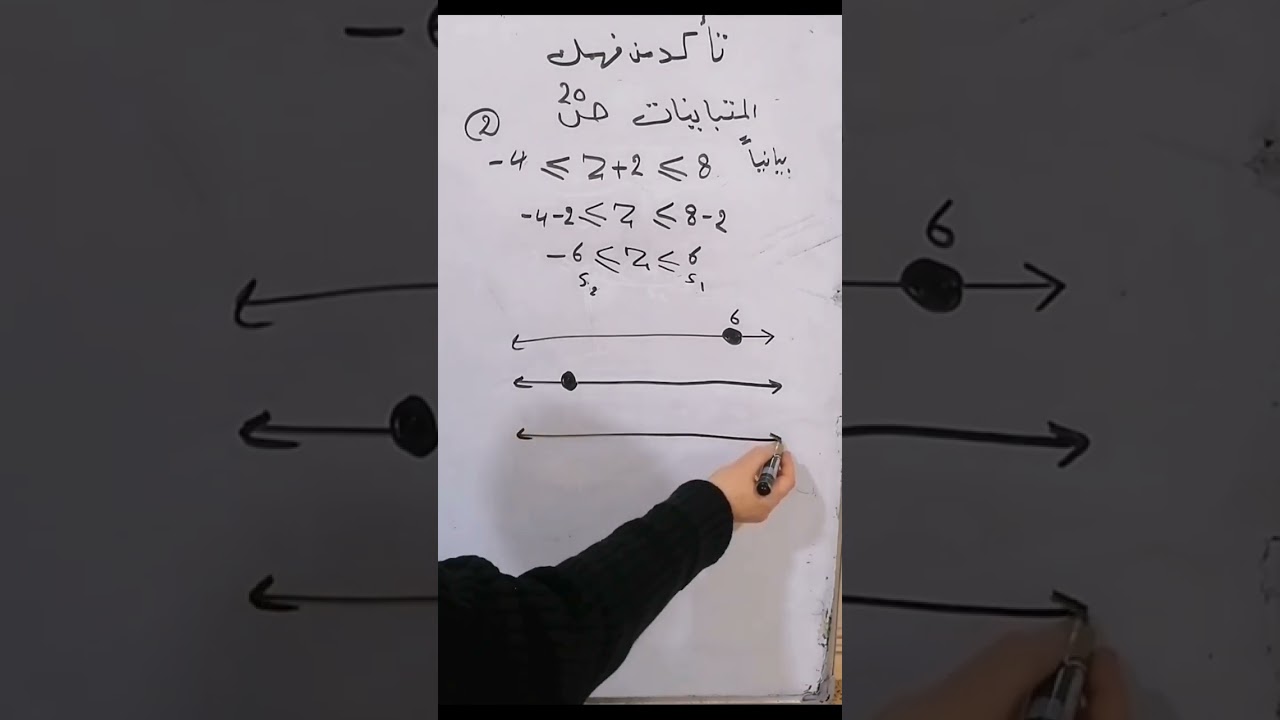 تأكد من فهمك
المتباينات ص 20
②
-4 ≤ Z+2 ≤ 8 بيانياً
-4-2 ≤ Z ≤ 8-2
-6 ≤ Z ≤ 6
S₂ S₁
6